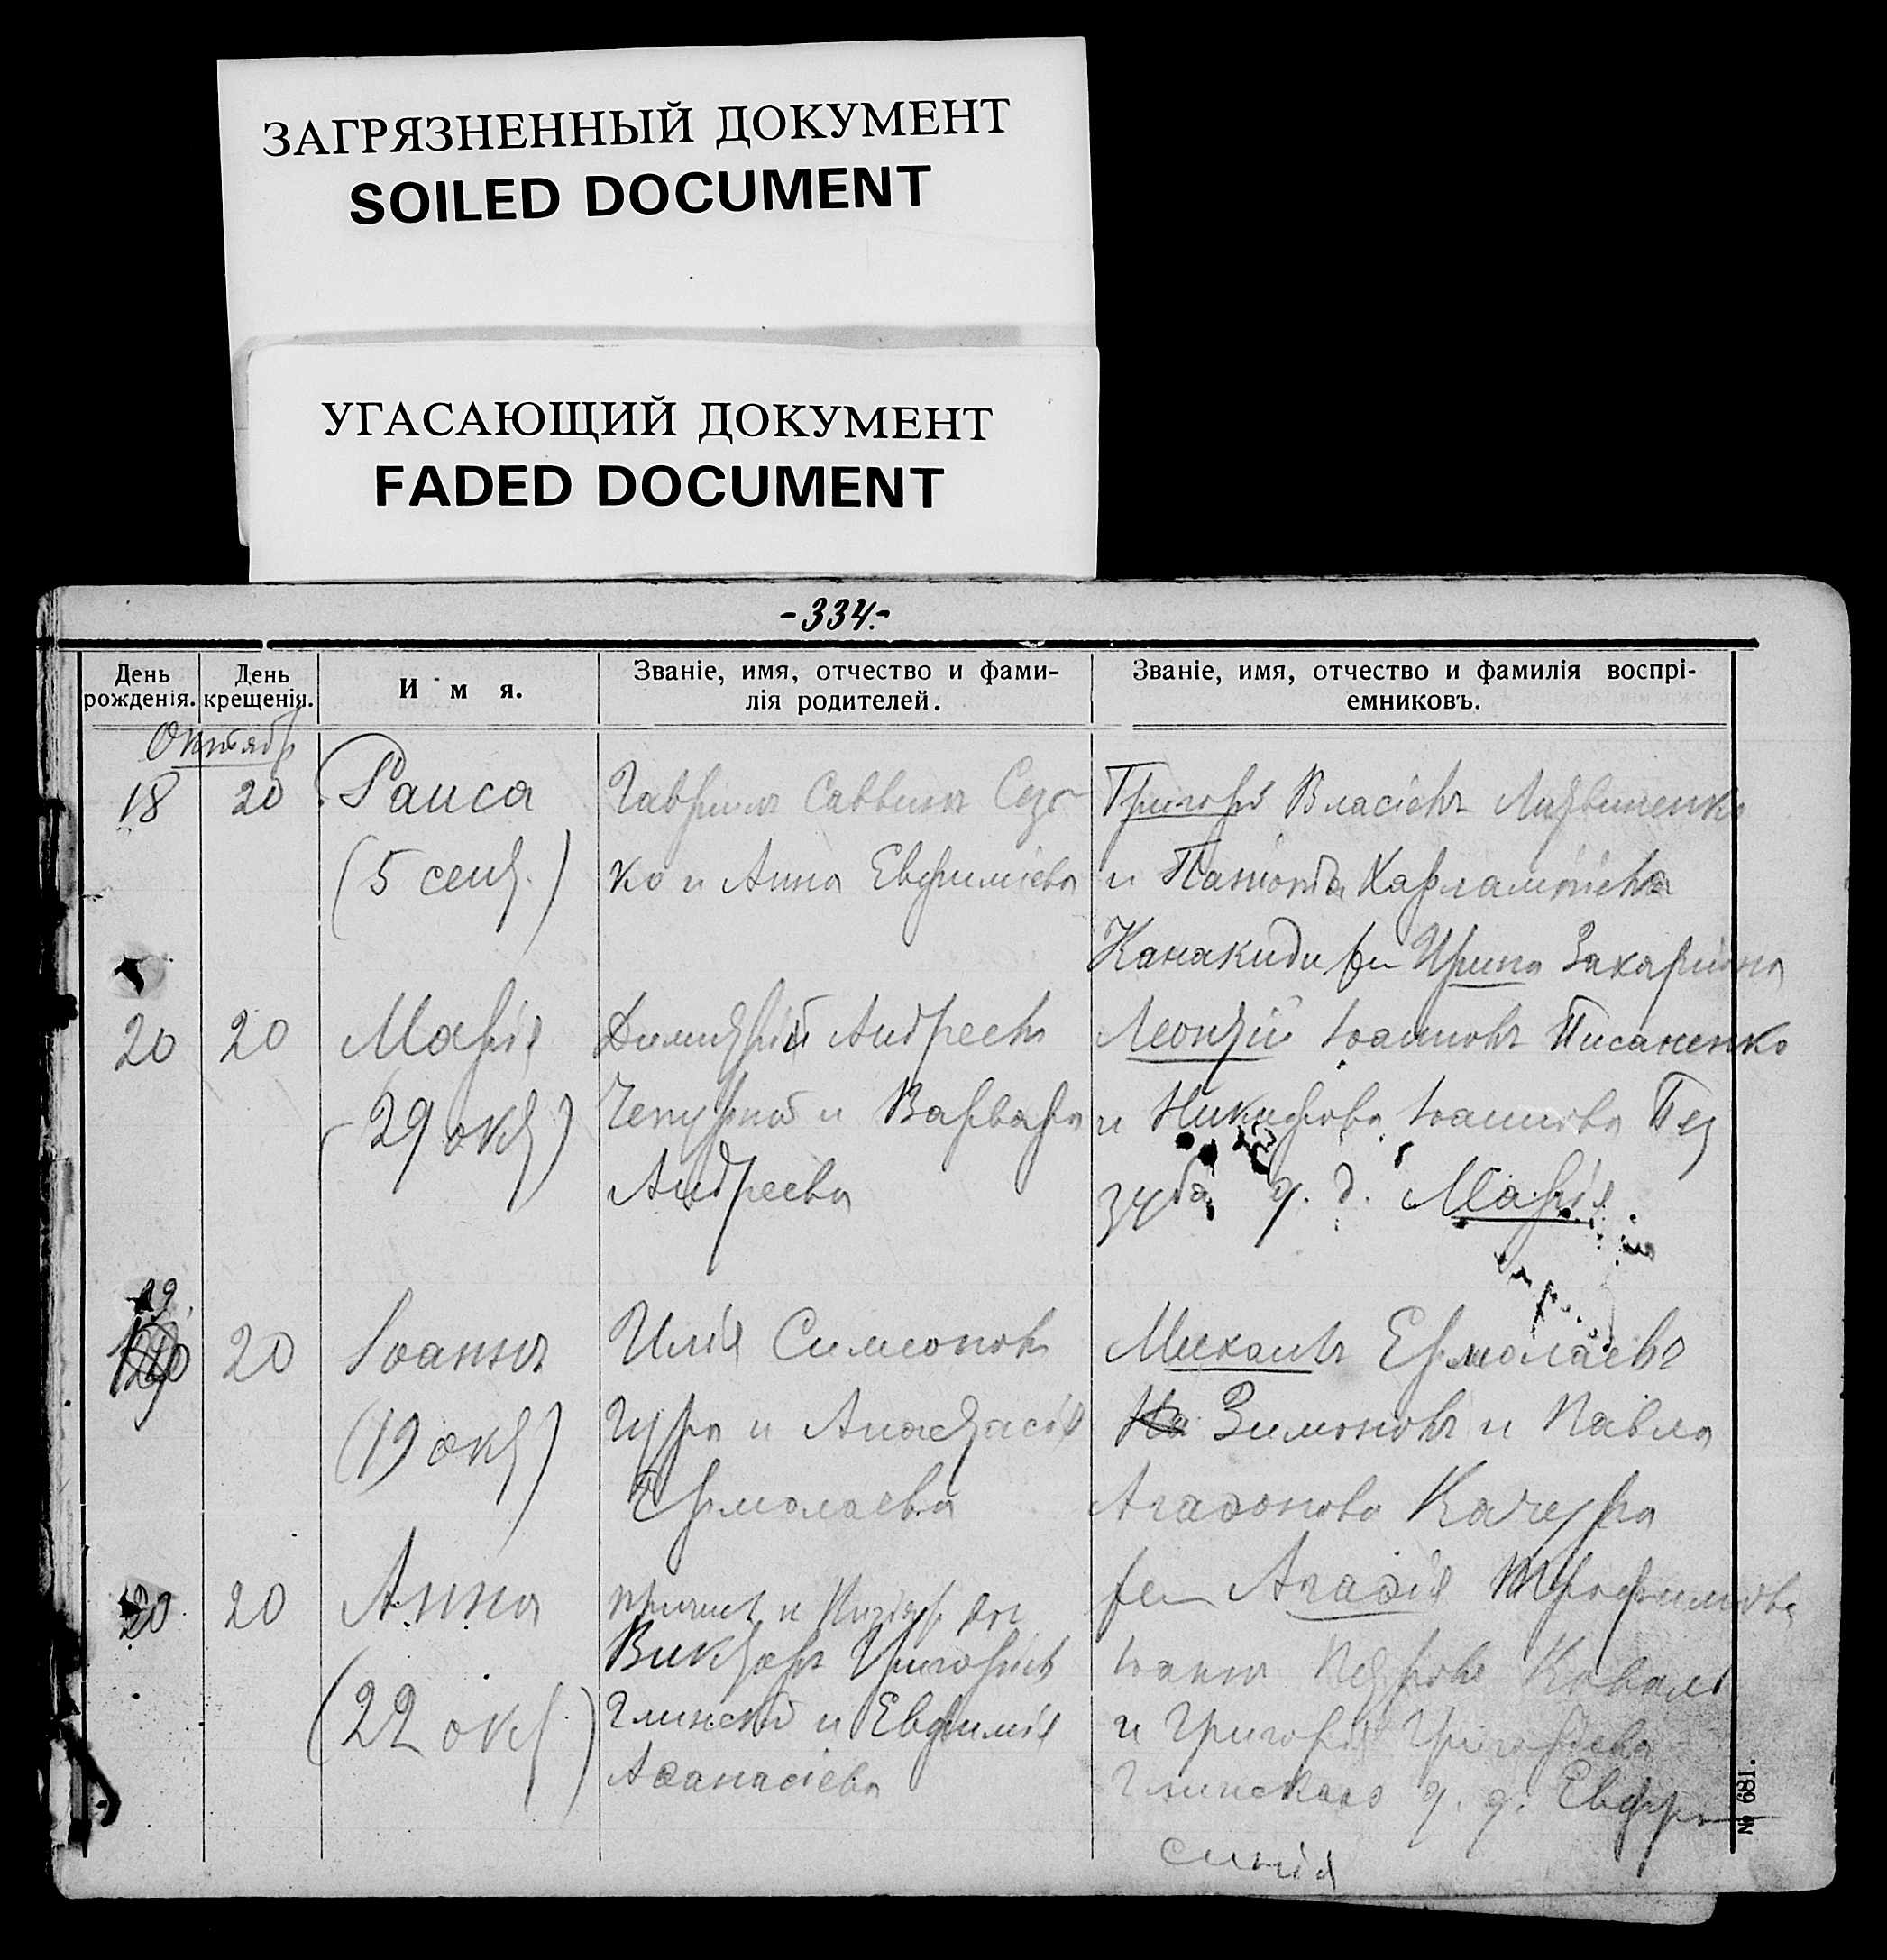 ЗАГРЯЗНЕННЫЙ ДОКУМЕНТ
SOILED DOCUMENT
УГАСАЮЩИЙ ДОКУМЕНТ
FADED DOCUMENT
-334.-
День рожденія.
День крещенія.
И м я.
Званіе, имя, отчество и фами-
лія родителей.
Званіе, имя, отчество и фамилія воспрі-
емниковъ.
Октябр
18
20
Раиса
(5 сент.)
Гавріилъ Саввинъ
ко и Анна Евфиміева
Григорій Власіевъ Литвиненко
и Харлампіева
Канакиди Ирина Захаріина
20
20
Марія
(29 окт)
Димитрій Андреевъ
Чепурной и Варвара
Андреева
Леонтій Іоанновъ Писаненко
и Никифора Іоаннова Пед
зуба д. д. Марія
19
20
Іоаннъ
(19 окт)
Илія Симеоновъ
Гура и Анастасія
Ермолаева
Михаилъ Ермолаевъ
Зимоновъ и Павла
Агаѳонова Качура
Агаѳія Трофимова
20
20
Анна
(22 окт)
Викторъ Григоріев
Глинскій и Евфимія
Аѳанасіева
Іоаннъ Петровъ Коваль
и Григорія Григоріева
Глинскаго д. д. Евфро
синія
№ 681.